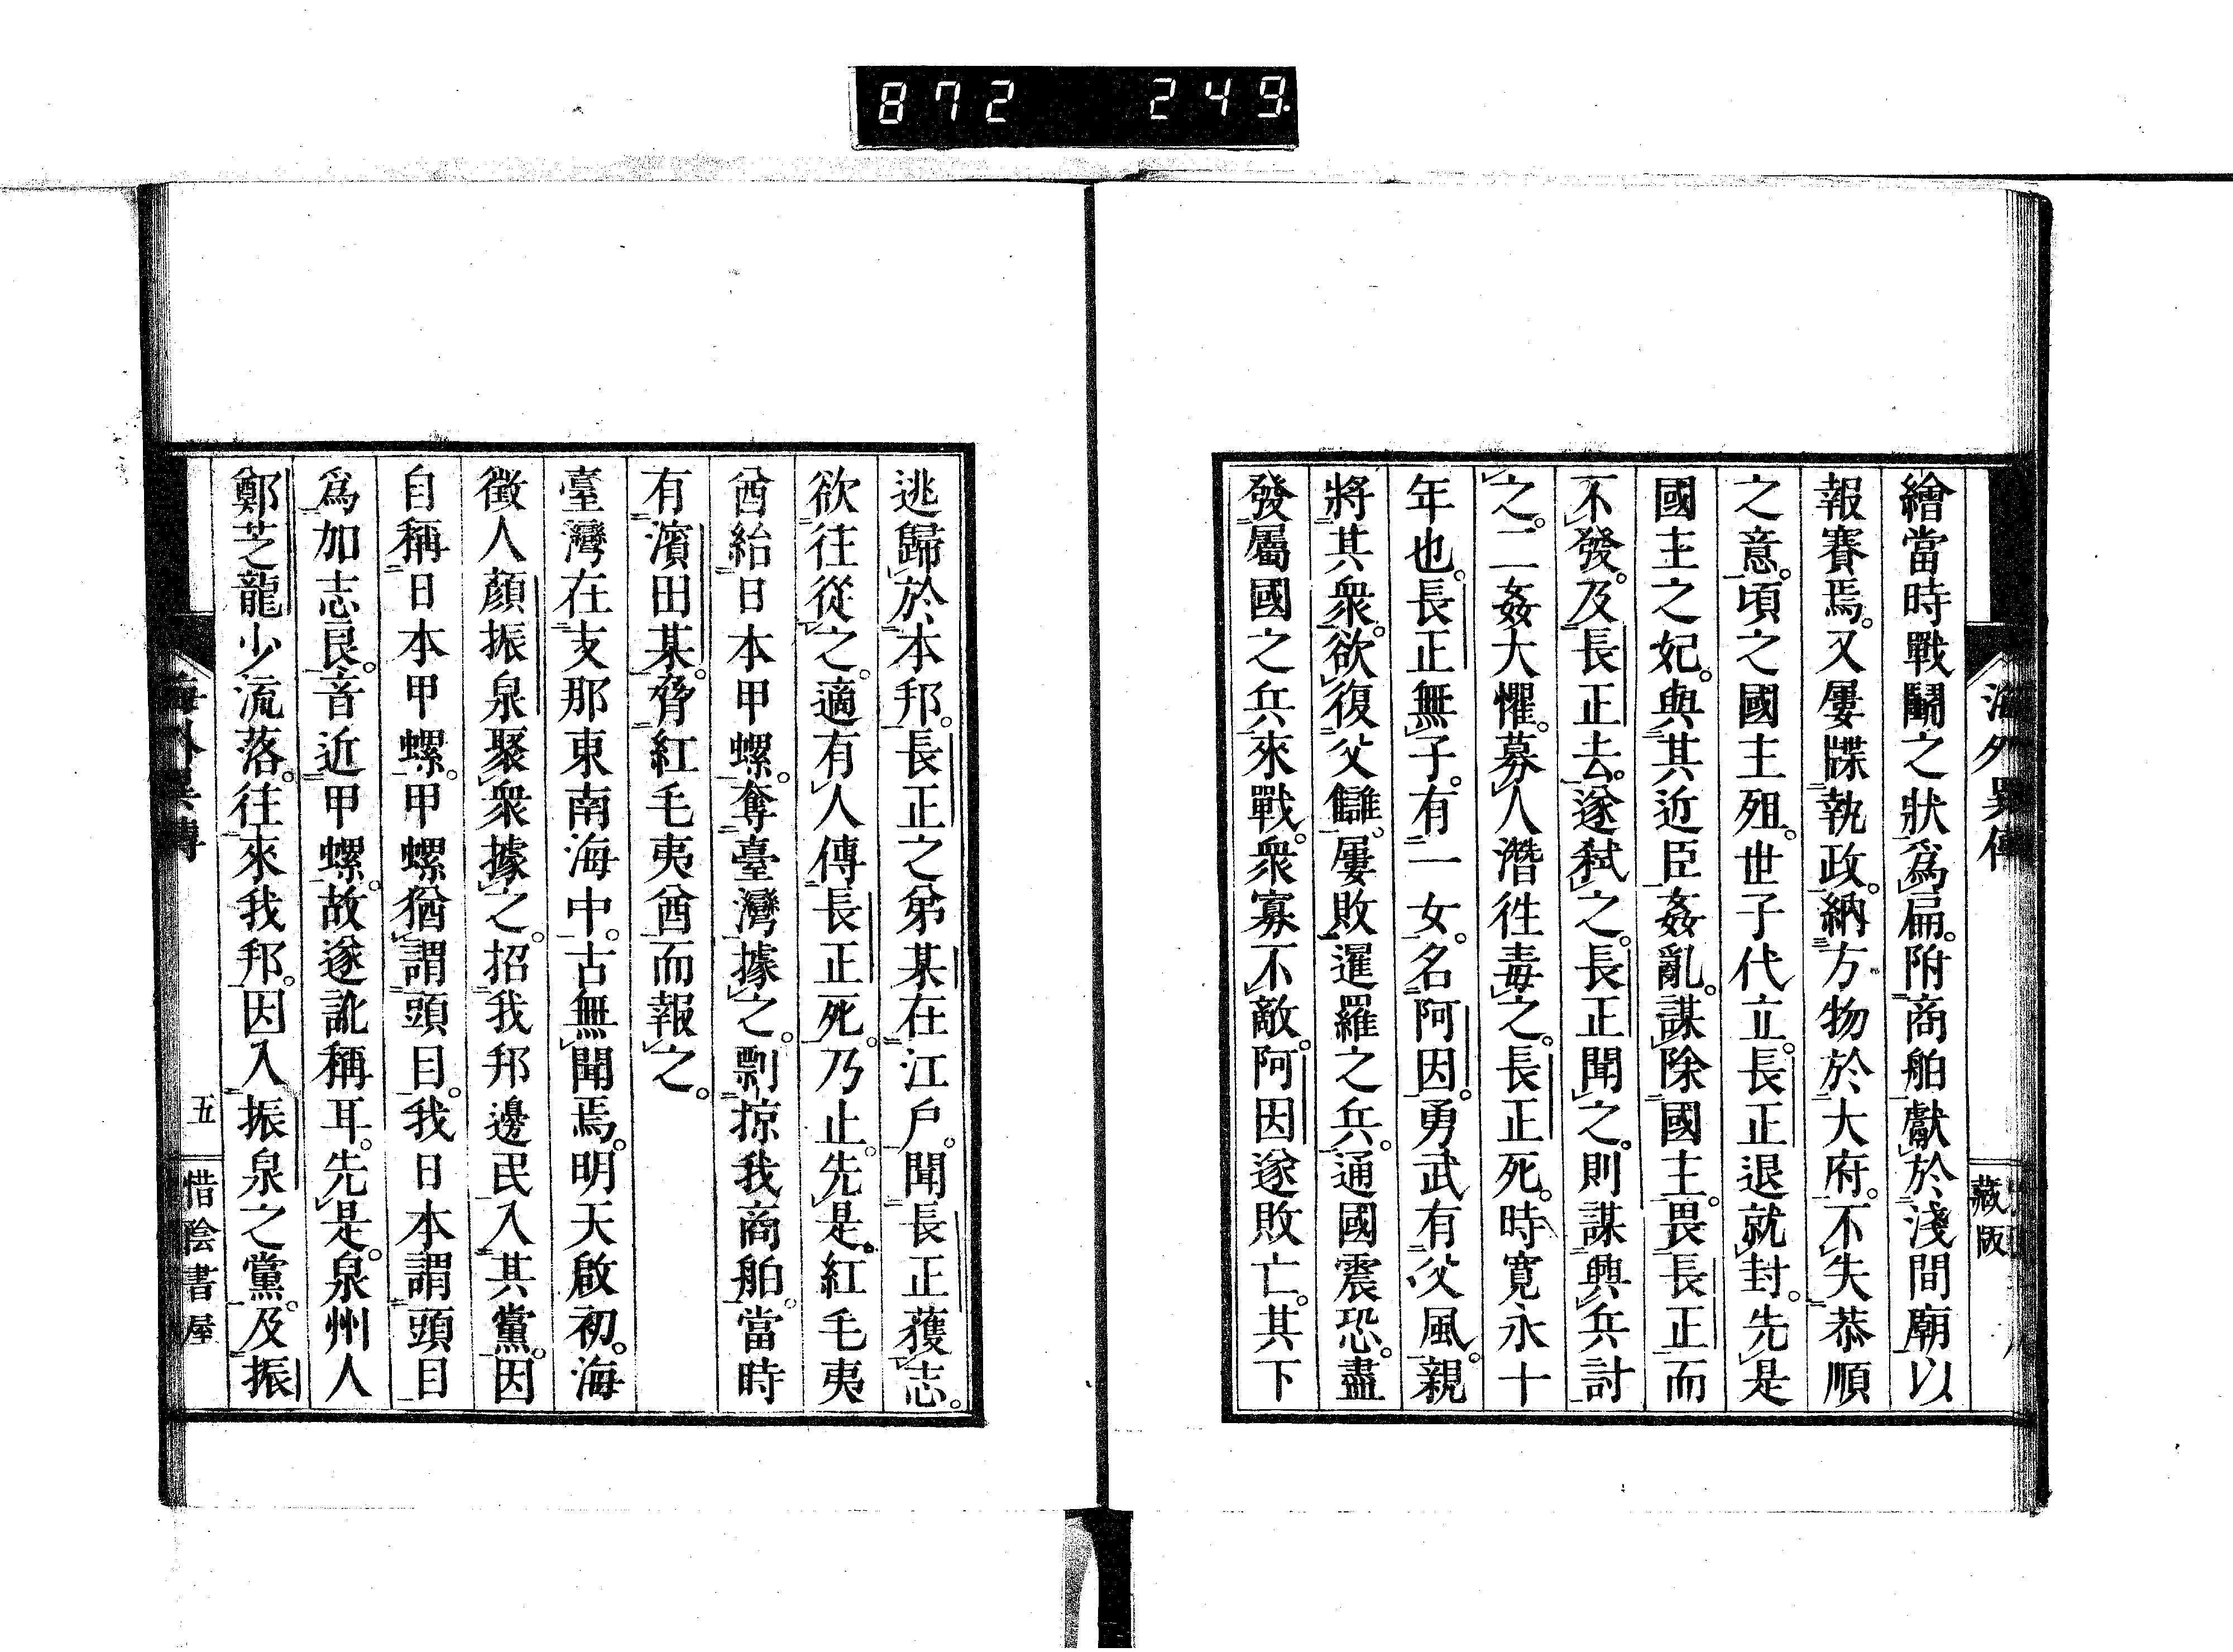 872 249
海外異傳
藏版
繪當時戰鬭之狀爲扁。附商舶獻於淺間廟以
報賽焉。又屢牒執政。納方物於大府。不失恭順
之意。頃之國主殂。世子代立。長正退就封。先是
國主之妃。與其近臣姦亂。謀除國主。畏長正而
不發。及長正去。遂弑之。長正聞之。則謀興兵討
之。二姦大懼。募人潛徃毒之。長正死。時寬永十
年也。長正無子。有一女。名阿因。勇武有父風。親
將其衆。欲復父讎。屢敗暹羅之兵。通國震恐。盡
發屬國之兵來戰。衆寡不敵。阿因遂敗亡。其下
逃歸於本邦。長正之弟某在江戶。聞長正獲志。
欲往從之。適有人傳長正死。乃止。先是。紅毛夷
酋紿日本甲螺。奪臺灣據之。剽掠我商舶。當時
有濱田某。脅紅毛夷酋而報之。
臺灣在支那東南海中。古無聞焉。明天啟初。海
徵人顏振泉聚衆據之。招我邦邊民入其黨。因
自稱日本甲螺。甲螺猶謂頭目。我日本謂頭目
爲加志良。音近甲螺。故遂訛稱耳。先是。泉州人
鄭芝龍少流落。往來我邦。因入振泉之黨。及振
海外異傳
五
惜陰書屋